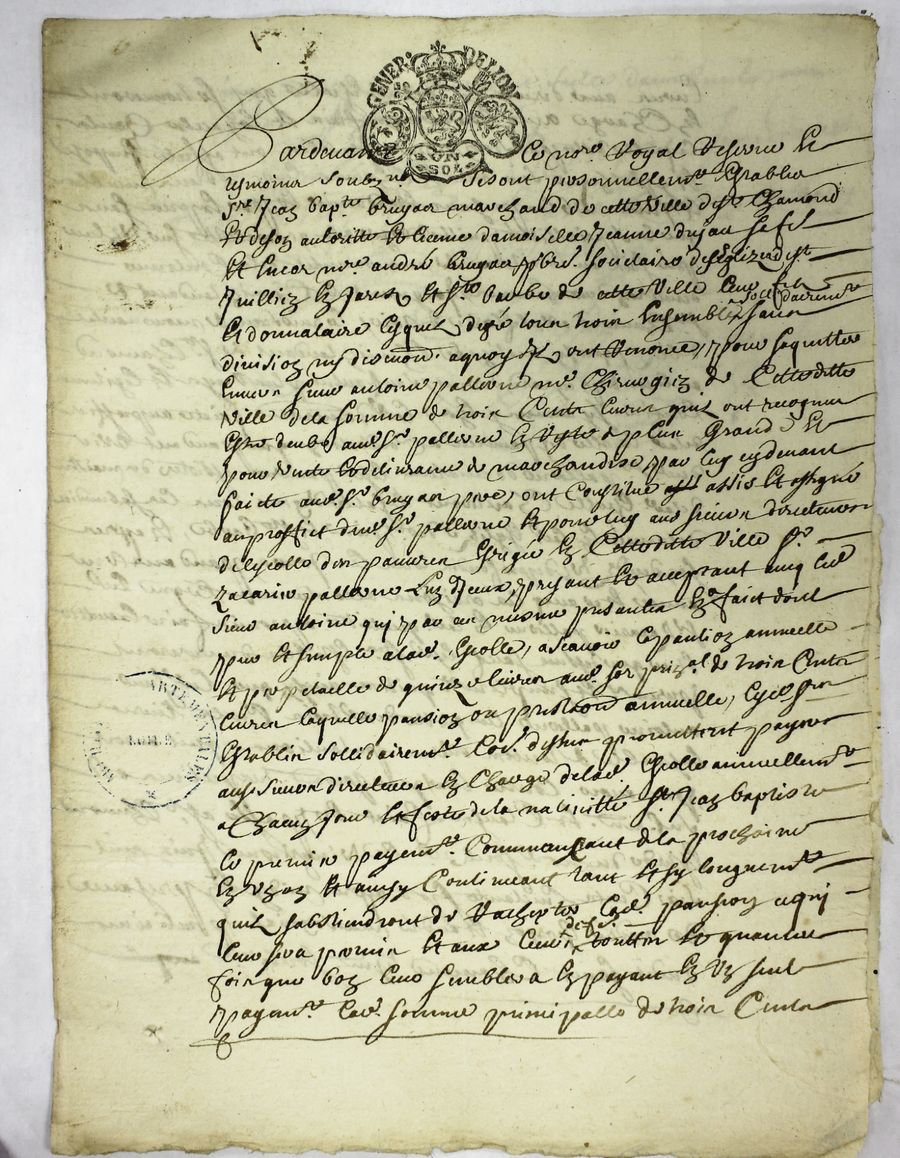 GENER. DE LION
UN SOL
Pardevant Le no.re Royal Reservé Et
tesmoins soubz.né Se sont personnellem.t Establis
S.re Jean bap.te bruyas marchand de cette Ville de S.t Chamond
Et de son autoritté Et licence damoiselle Jeanne dujau sa f.e
Et Encor m.re andré bruyas p.bre Societaire
Jullien En Jarez Et S.te barbe de cette Ville Leur fils
Et donnataire Lesquels de gré tous trois Ensemble sans
division ny discution. a quoy Ils ont Renoncé, pour saquitter
Envers Sieur antoine palleone m.e Chirurgien de Cetteditte
Ville de la somme de trois Cents Livres quils ont recognus
Estre deubs aud. S.r palleone En Reste de plus Grande Et
pour vente Et delivrance de marchandise par luy cydevant
faicte aud. S.r bruyas pere, ont Constitué assis Et assigné
au proffict dud. S.r palleone Et pour luy aux sieurs directeurs
de lescolle des pauvres Erigée En Cetteditte Ville S.r
Zacarie palleone Lun dJeux, p̃sant Et acceptant
Sieur antoine qui par ces mesme presantes En faict dont
pur Et simple a lad. Escolle, a scavoir La pantion annuelle
Et perpetuelle de quinze Livres au sor prin.al de trois Cents
Livres Laquelle pansion ou prestation annuelle, Lesd. s.rs
Establis sollidairem.t Co.e dessus promettent payer
auxd. Sieurs directeurs En Charge de lad. Escolle annuellem.t
a Chacun Jour Et feste de la nativitté S.t Jean baptiste
Le premier payem.t Commancant de la prochaine
En Un an Et ainsy Continuant tant Et sy longuem.t
quils sabstiendront de Rachepter Lad. pansion ce qui
Leur sera permis Et aux Leurs touttes Et quantes
fois que bon Leur semblera En payant En Un seul
payem.t Lad. somme principalle de trois Cents